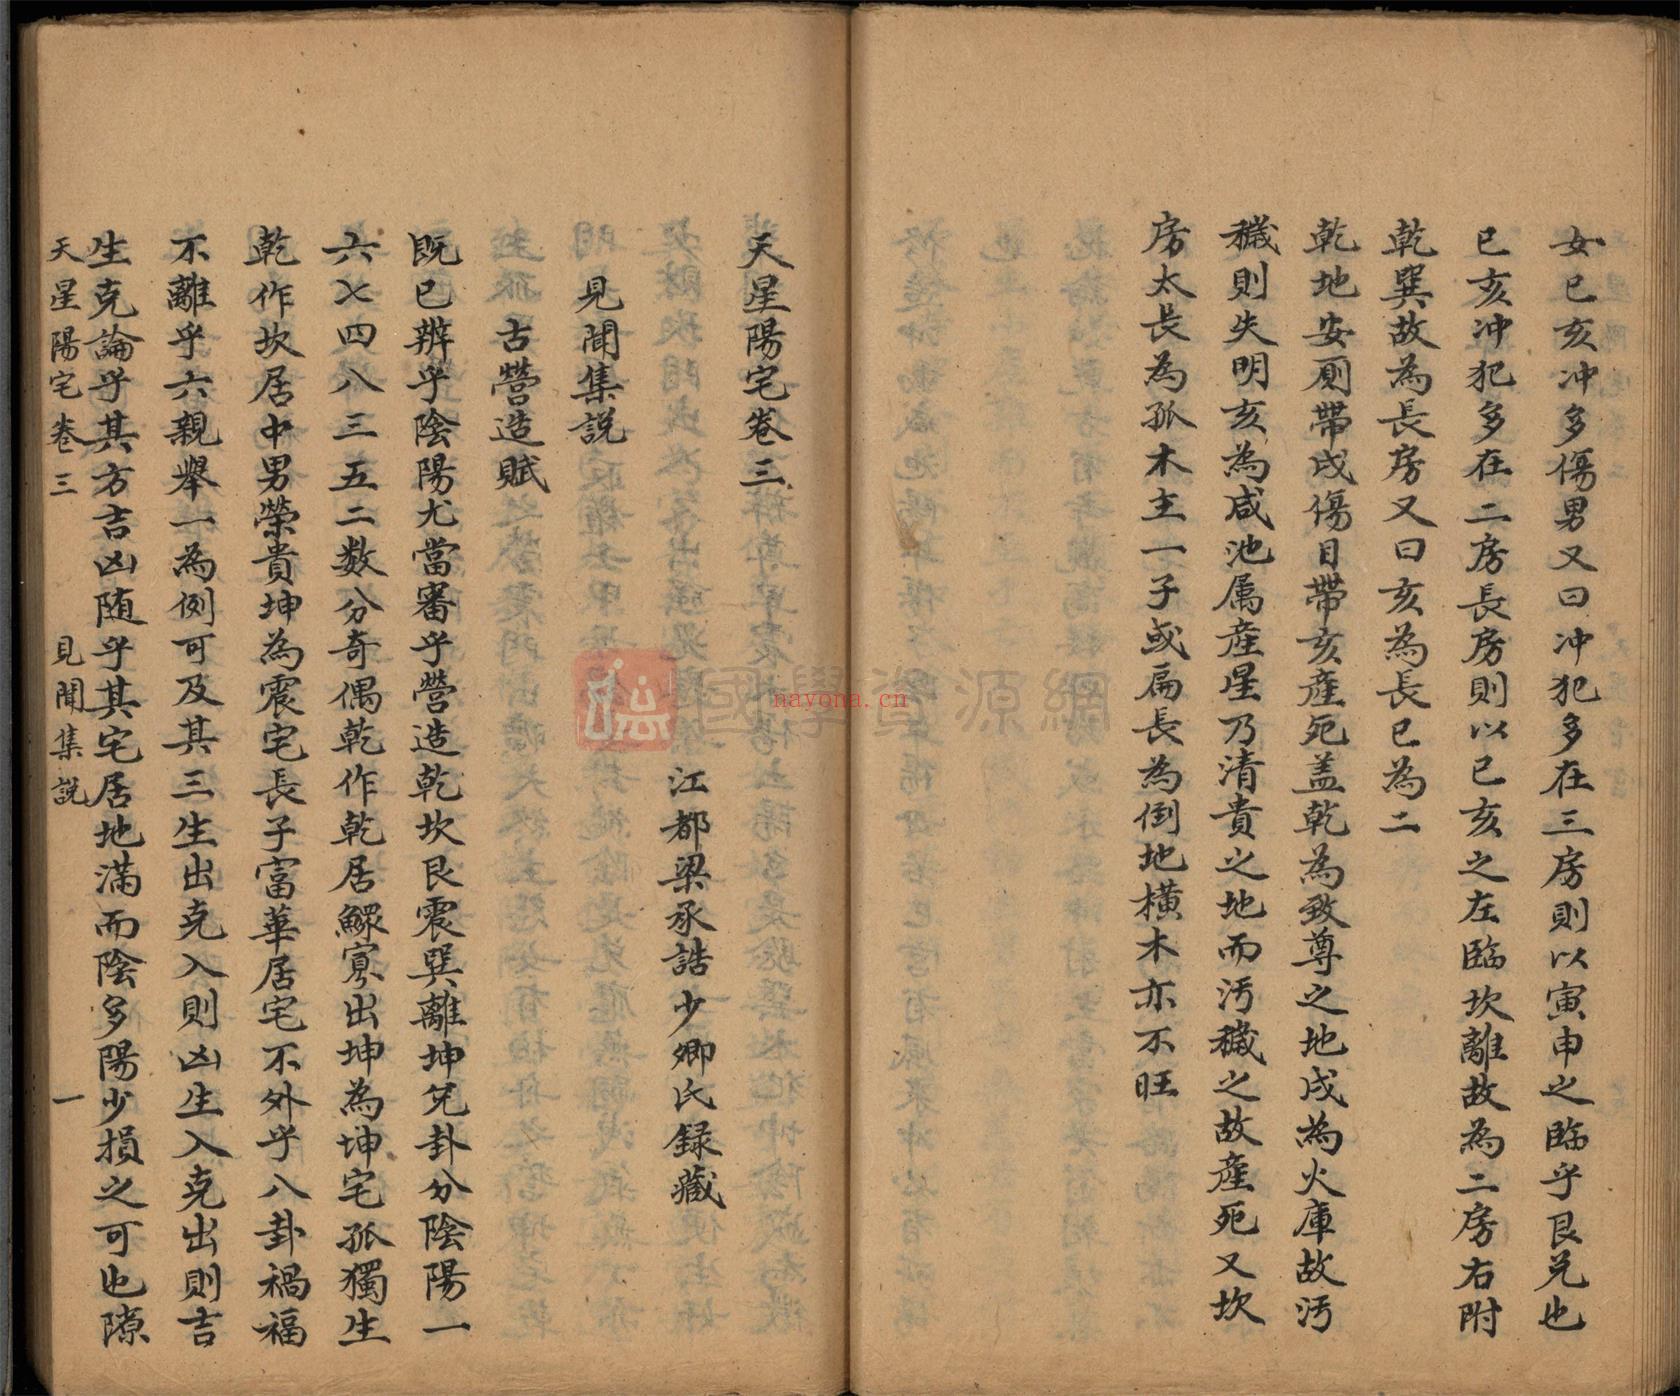 女巳亥冲多傷男又曰冲犯多在三房則以寅申之臨乎艮兑也
巳亥冲犯多在二房長房則以巳亥之左臨坎離故為二房右附
乾巽故為長房又曰亥為長巳為二
乾地安厠帶戌傷目帶亥産死盖乾為致尊之地戌為火庫故污
穢則失明亥為咸池属産星乃清貴之地而污穢之故産死又坎
房太長為孤木主一子或扁長為倒地横木亦不旺
天星陽宅卷三
江都梁承誥少卿氏録藏
見聞集説
古營造賦
既已辨乎陰陽尤當審乎營造乾坎艮震巽離坤兑卦分陰陽一
六七四八三五二数分奇偶乾作乾居鰥寡出坤為坤宅孤獨生
乾作坎居中男榮貴坤為震宅長子富華居宅不外乎八卦禍福
不離乎六親舉一為例可及其三生出克入則凶生入克出則吉
生克論乎其方吉凶随乎其宅居地满而陰多陽少損之可也隙
天星陽宅卷三 見聞集説 一
國學資源網
nayona.cn